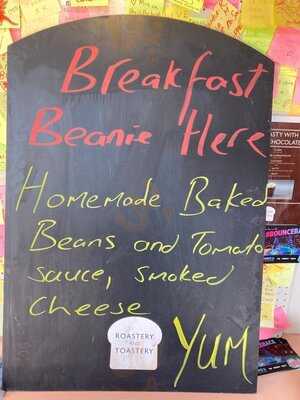 Breakfast
Beanie Here
Homemade Baked
Beans and Tomato
sauce, smoked
cheese
YUM
ROASTERY
AND
TOASTERY
TY WITH
CHOCOLATE
BOUNCEBA